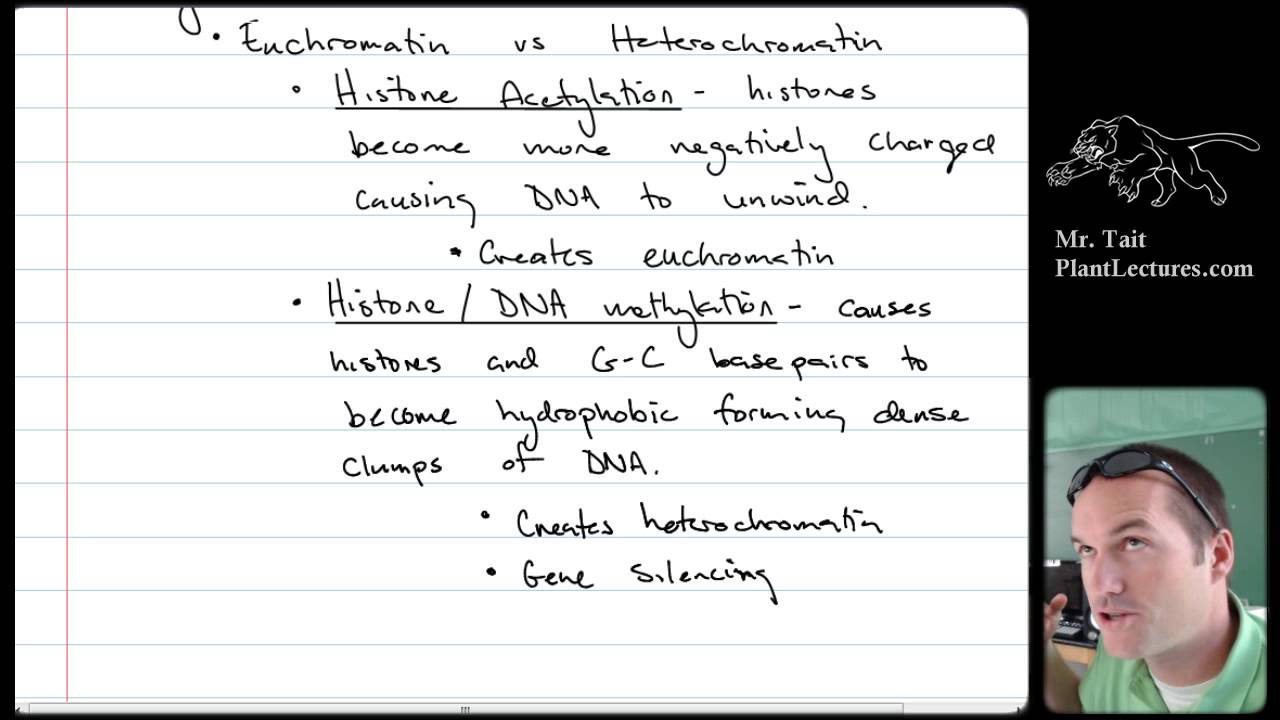 • Euchromatin vs Heterochromatin
• Histone Acetylation - histones
become more negatively charged
causing DNA to unwind.
• Creates euchromatin
• Histone / DNA methylation - causes
histones and G-C base pairs to
become hydrophobic forming dense
clumps of DNA.
• Creates heterochromatin
• Gene Silencing
Mr. Tait
PlantLectures.com